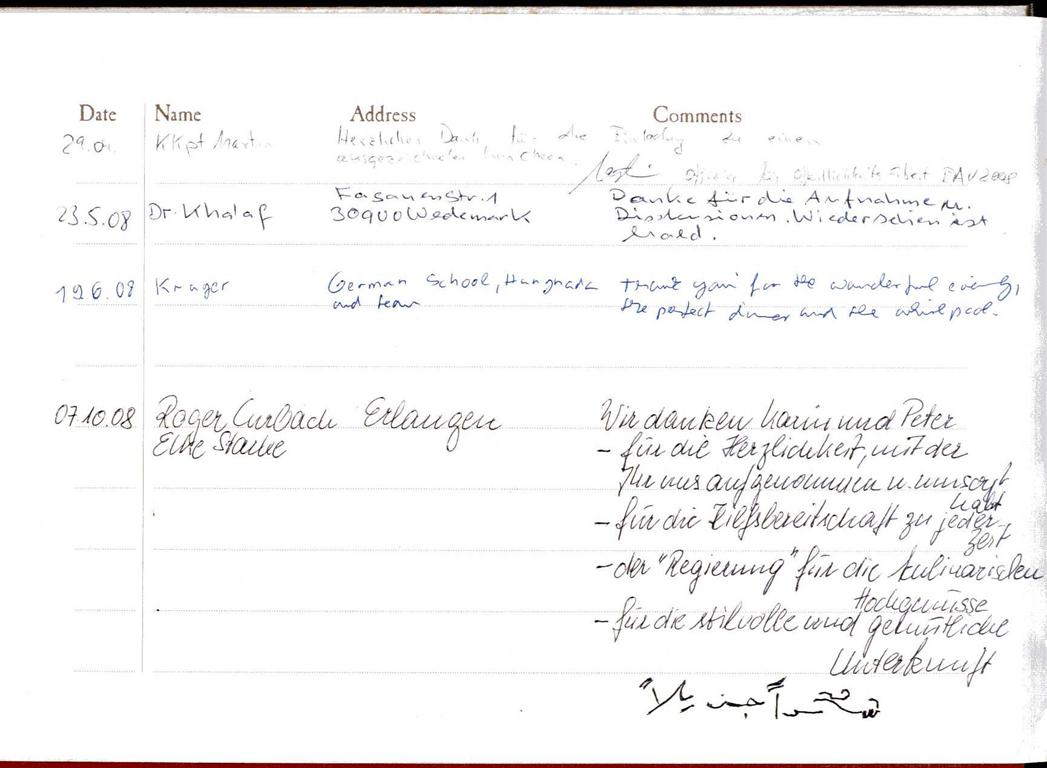 Date Name Address Comments
29.04. KKpt Martin Herzlichen Dank für die Einladung zu einem
ausgezeichneten Luncheon.
Offizier für
Fasanenstr. 1 Danke für die Aufnahme u.
23.5.08 Dr. Khalaf 30900 Wedemark Disskusionen. Wiedersehen ist
bald.
19.6.08 Kruger German School, Hurghada Thank you for the wonderful evening,
and team the perfect dinner and the whirlpool.
07.10.08 Roger Curbach Erlangen Wir danken Karin und Peter
Elke Starke - für die Herzlichkeit, mit der
Ihr uns aufgenommen u. umsorgt
habt
- für die Hilfsbereitschaft zu jeder
Zeit
- der "Regierung" für die kulinarischen
Hochgenüsse
- für die stilvolle und gemütliche
Unterkunft
شكراً جزيلاً